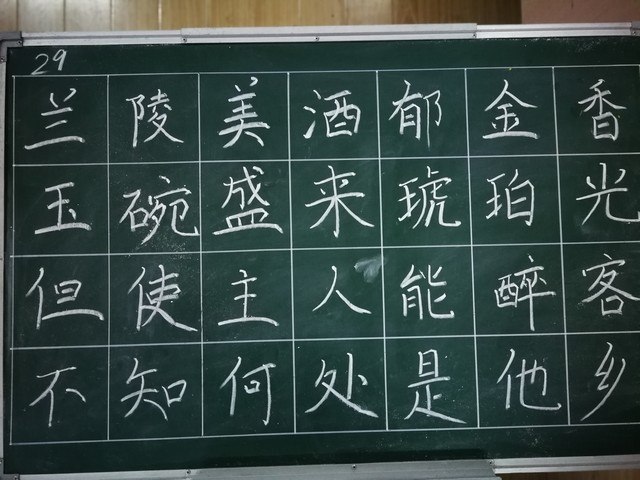 29
兰陵美酒郁金香
玉碗盛来琥珀光
但使主人能醉客
不知何处是他乡